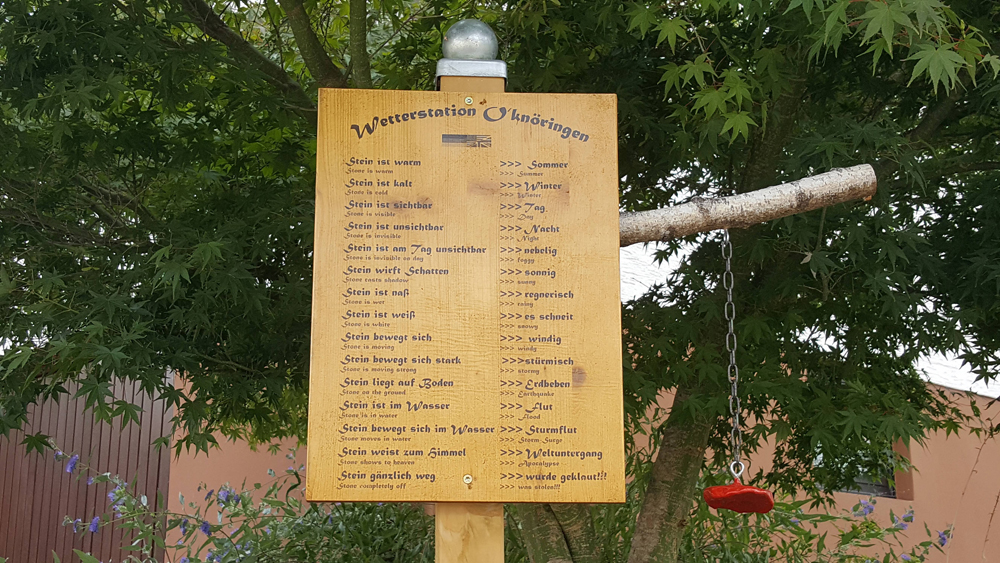 Wetterstation O'knöringen
Stein ist warm >>> Sommer
Stone is warm >>> Summer
Stein ist kalt >>> Winter
Stone is cold >>> Winter
Stein ist sichtbar >>> Tag
Stone is visible >>> Day
Stein ist unsichtbar >>> Nacht
Stone is invisible >>> Night
Stein ist am Tag unsichtbar >>> nebelig
Stone is invisible on day >>> foggy
Stein wirft Schatten >>> sonnig
Stone casts shadow >>> sunny
Stein ist naß >>> regnerisch
Stone is wet >>> rainy
Stein ist weiß >>> es schneit
Stone is white >>> snowy
Stein bewegt sich >>> windig
Stone is moving >>> windy
Stein bewegt sich stark >>> stürmisch
Stone is moving strong >>> stormy
Stein liegt auf Boden >>> Erdbeben
Stone on the ground >>> Earthquake
Stein ist im Wasser >>> Flut
Stone is in water >>> Flood
Stein bewegt sich im Wasser >>> Sturmflut
Stone moves in water >>> Storm Surge
Stein weist zum Himmel >>> Weltuntergang
Stone shows to heaven >>> Apocalypse
Stein gänzlich weg >>> wurde geklaut!!!
Stone completely off >>> was stolen!!!